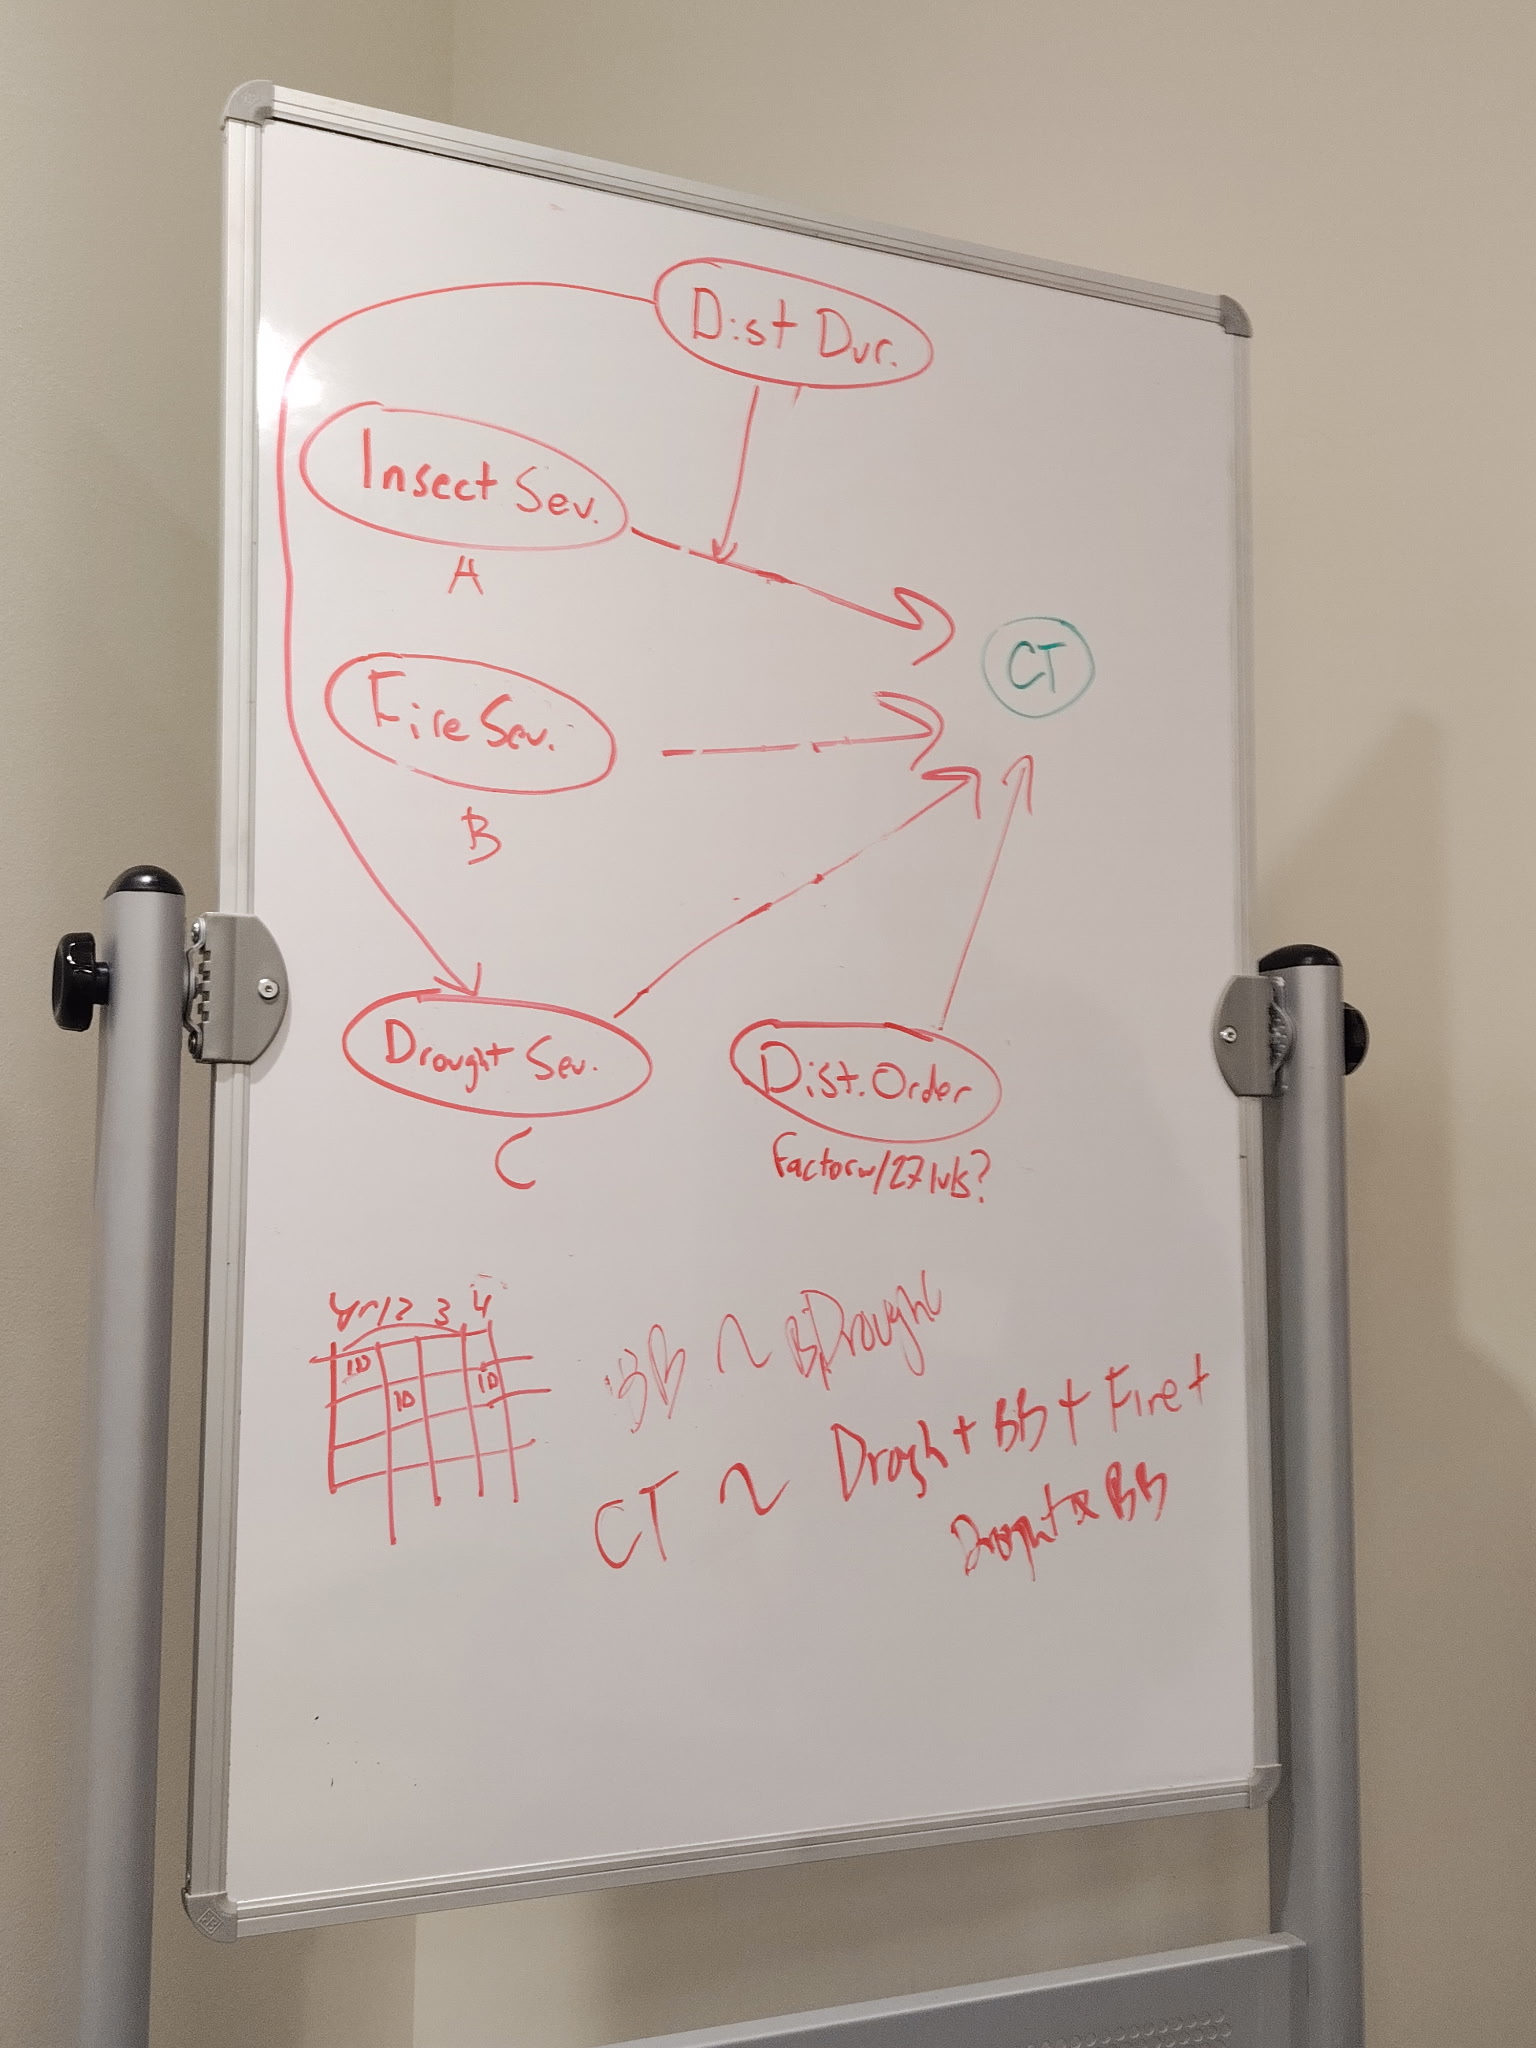 Dist Dur.
Insect Sev.
A
CT
Fire Sev.
B
Drought Sev.
C
Dist. Order
Factor w/ 27 lvls?
Yr 1 2 3 4
10
10 10
BB ~ Drought
CT ~ Drogh + BB + Fire +
Droght * BB